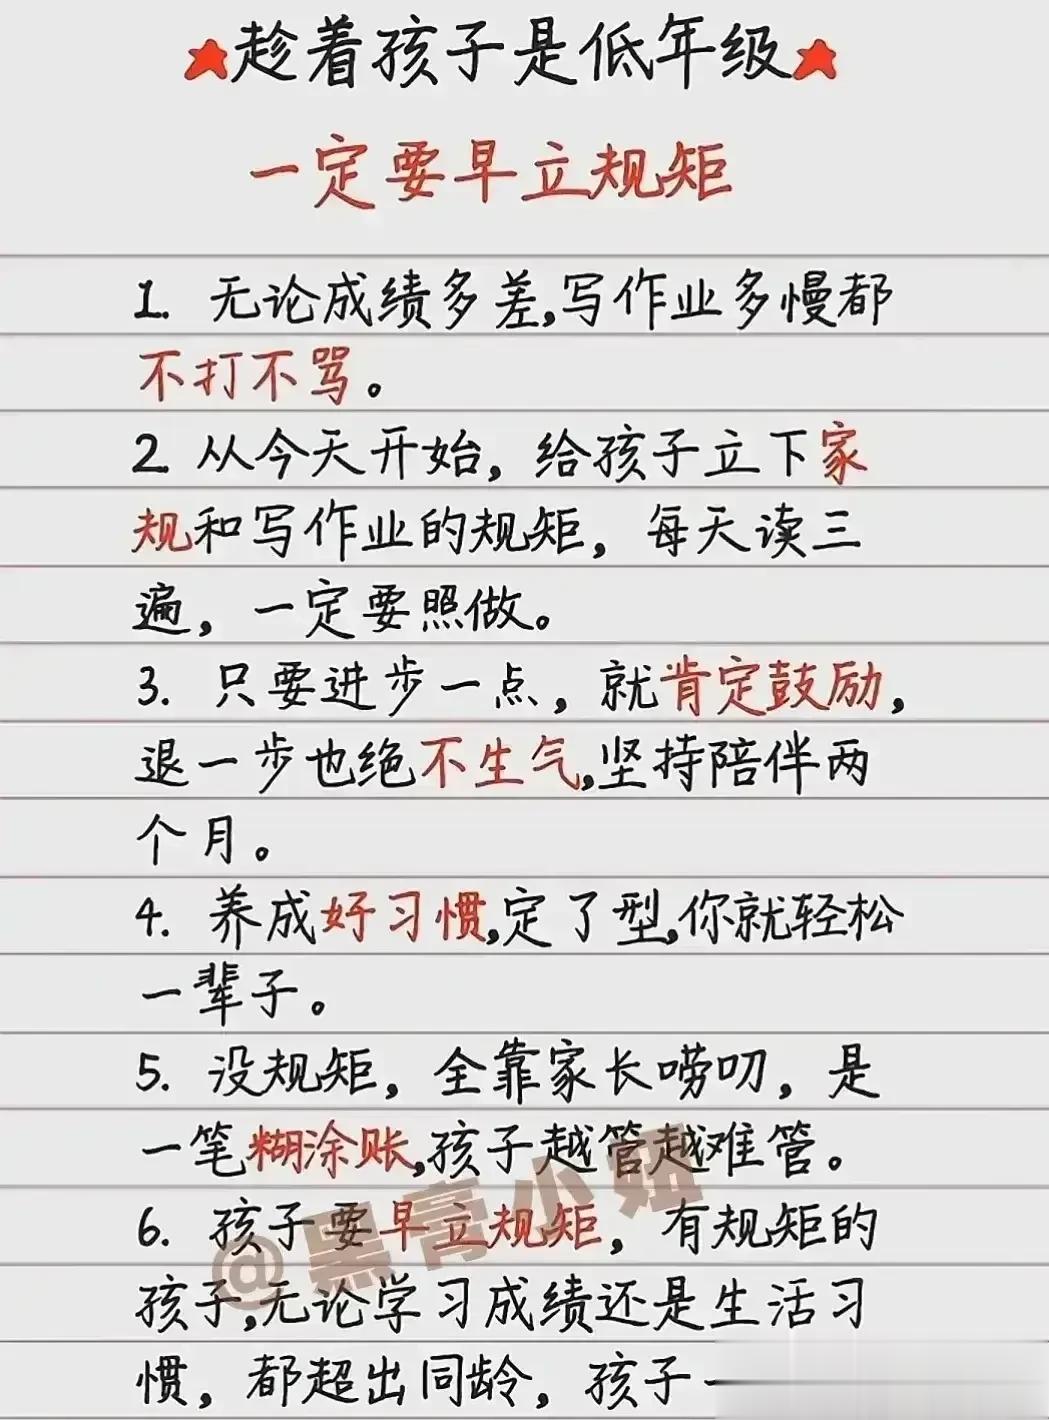 趁着孩子是低年级
一定要早立规矩
1. 无论成绩多差,写作业多慢都
不打不骂。
2. 从今天开始，给孩子立下家
规和写作业的规矩，每天读三
遍，一定要照做。
3. 只要进步一点，就肯定鼓励，
退一步也绝不生气,坚持陪伴两
个月。
4. 养成好习惯,定了型,你就轻松
一辈子。
5. 没规矩，全靠家长唠叨，是
一笔糊涂账,孩子越管越难管。
6. 孩子要早立规矩，有规矩的
孩子,无论学习成绩还是生活习
惯，都超出同龄，孩子一
@黑膏小妞